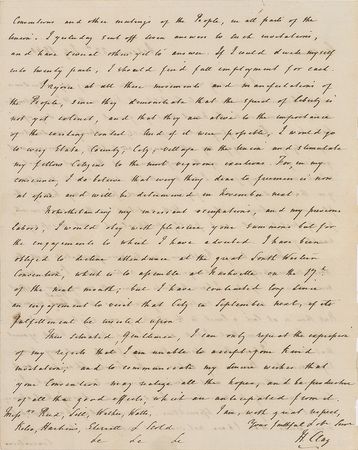 Conventions and other meetings of the People, in all parts of the
Union. I yesterday sent off seven answers to such invitations,
and have several others yet to answer. If I could divide myself
into twenty parts, I should find full employment for each
I rejoice at all these movements and manifestations of
the People, since they demonstrate that the spirit of liberty is
not yet extinct, and that they are alive to the importance
of the existing contest. And if it were possible, I would go
to every State, County, City & village in the Union and stimulate
my fellow Citizens to the most vigorous exertions. For, in my
conscience, I do believe that every thing dear to freemen is now
at stake and will be determined in November next
Notwithstanding my incessant occupations, and my previous
labors, I would obey with pleasure your summons but for
the engagements to which I have adverted. I have been
obliged to decline attendance at the great South Western
Convention, which is to assemble at Nashville on the 17th.
of the next month; but I have contracted long since
an engagement to visit that City in September next, if its
fulfilment be insisted upon.
Thus situated, Gentlemen, I can only repeat the expression
of my regrets that I am unable to accept your kind
invitation; and to communicate my sincere wishes that
your Convention may realize all the hopes, and be productive
of all the good effects, which are anticipated from it.
Mess.rs Reed, Walker, Watts, I am, with great respect,
Harkins, Sherrett & Todd Your faithful & ob. Servt.
&c &c &c H. Clay